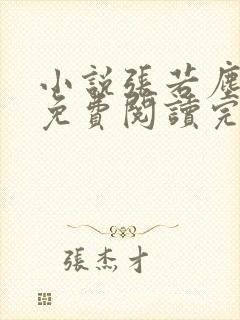 小說張若塵
免費閱讀完
張杰才